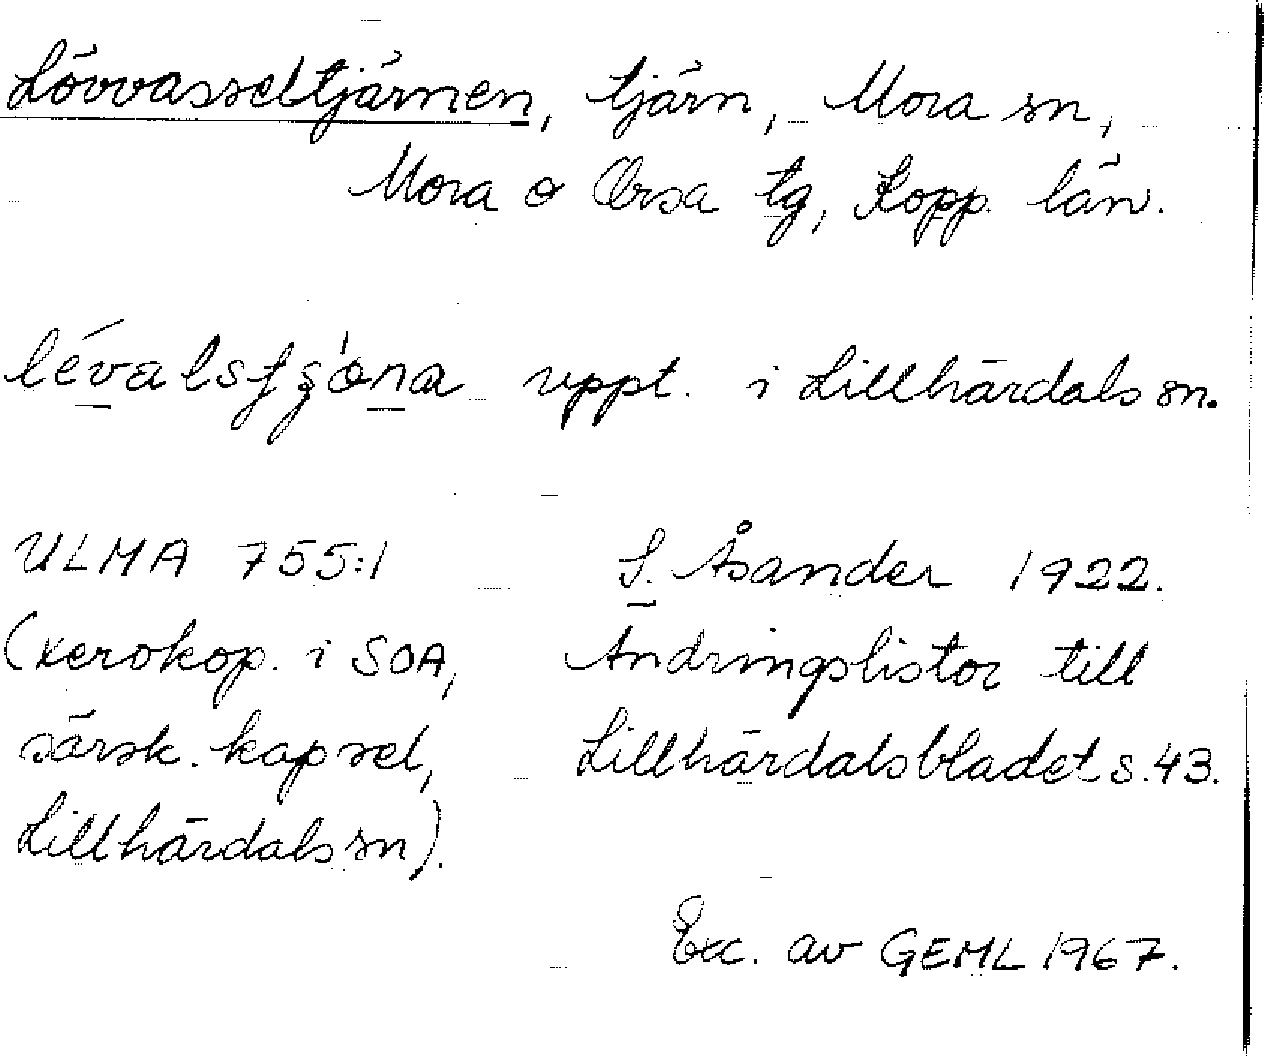 Lövvasseltjärnen, tjärn, Mora sn,
Mora o Orsa tg, Kopp. län.
uppt. i Lillhärdals sn.
ULMA 755:1 S. Åsander 1922.
(xerokop. i SOA, Ändringslistor till
särsk. kapsel, Lillhärdalsbladet s. 43.
Lillhärdals sn).
Exc. av GEML 1967.